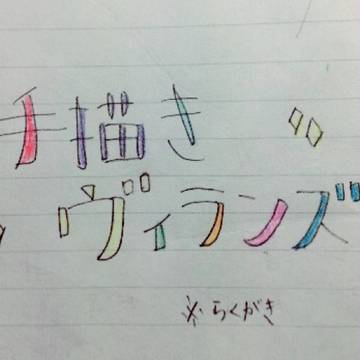 手描き
ヴィランズ
※らくがき